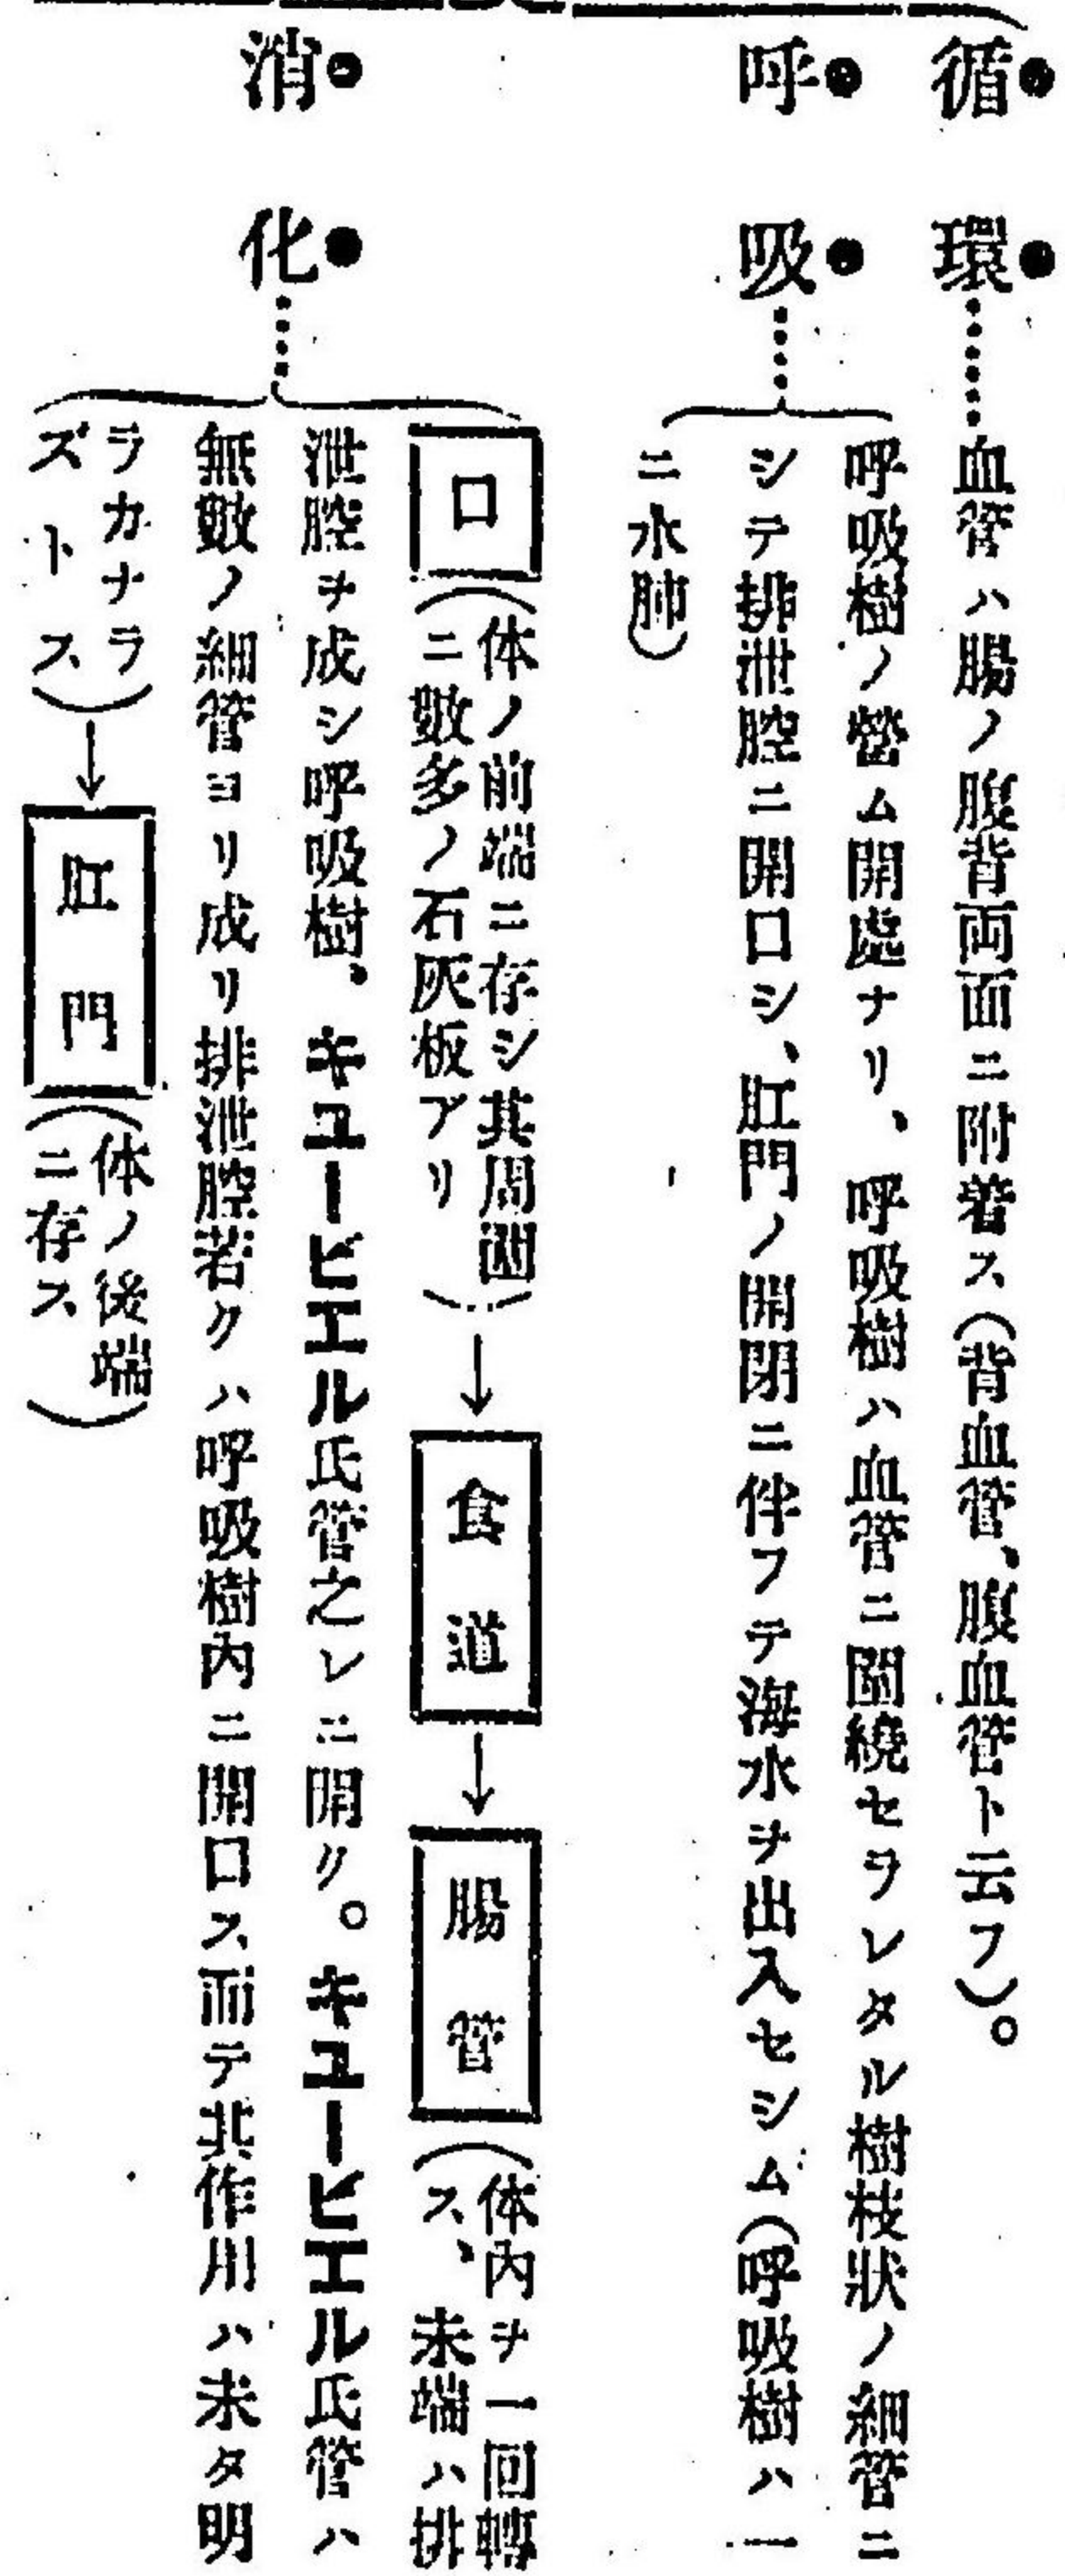 循環……血管ハ腸ノ腹背両面ニ附着ス(背血管、腹血管ト云フ)。
呼吸……
呼吸樹ノ營ム開處ナリ、呼吸樹ハ血管ニ圍繞セラレタル樹枝狀ノ細管ニ
シテ排泄腔ニ開口シ、肛門ノ開閉ニ伴フテ海水ヲ出入セシム(呼吸樹ハ一
ニ水肺)
消化……
口(体ノ前端ニ存シ其周圍
ニ數多ノ石灰板アリ)→食道→腸管(体內ヲ一回轉
ス、末端ハ排
泄腔ヲ成シ呼吸樹、キユービエル氏管之レニ開ク。キユービエル氏管ハ
無數ノ細管ヨリ成リ排泄腔若クハ呼吸樹內ニ開口ス而テ其作用ハ未タ明
ラカナラ
ズトス)→肛門(体ノ後端
ニ存ス)